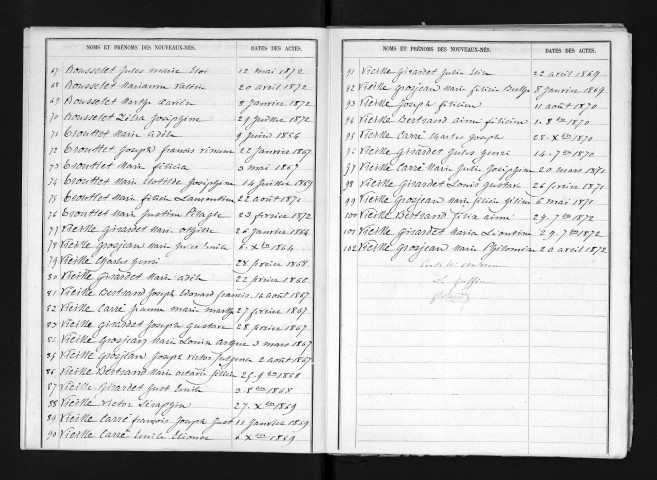 NOMS ET PRÉNOMS DES NOUVEAUX-NÉS. DATES DES ACTES.
67 Rousselet Jules marie Eloi 12 mai 1872
68 Rousselet Marianne 20 avril 1872
69 Rousselet Marthe 8 janvier 1872
70 Rousselet Zélia Joséphine 29 juillet 1872
71 Trouttet Marie adèle 9 juin 1864
72 Trouttet Joseph francois 22 janvier 1867
73 Trouttet Marie félicia 3 mai 1867
74 Trouttet Marie Clotilde Joséphine 14 juillet 1869
75 Trouttet Marie 22 août 1871
76 Trouttet Marie Justine Pélagie 23 février 1872
77 Vieille Girardet Marie 26 janvier 1864
78 Vieille grosjean Marie 6 Xbre 1864
79 Vieille Charles henri 28 février 1865
80 Vieille Girardet Marie adèle 22 février 1866
81 Vieille Bertrand Joseph Edouard francois 14 août 1867
82 Vieille Carré jeanne marie marthe 27 février 1867
83 Vieille girardet Joseph gustave 28 février 1867
84 Vieille grosjean Marie Louise 3 mars 1867
85 Vieille grosjean Joseph victor 2 août 1867
86 Vieille Bertrand Marie octavie 1868
87 Vieille Girardet Just Emile 3 8bre 1868
88 Vieille victor Séraphin 27 Xbre 1869
89 Vieille Carré françois Joseph Just 11 janvier 1869
90 Vieille Carré Emile 6 Xbre 1869
NOMS ET PRÉNOMS DES NOUVEAUX-NÉS. DATES DES ACTES.
91 Vieille Girardet Julie 22 avril 1869
92 Vieille grosjean marie félicie Berthe 8 janvier 1869
93 Vieille Joseph félicien 11 août 1870
94 Vieille Bertrand félicien 1870
95 Vieille Carré Charles Joseph 28 Xbre 1870
96 Vieille Girardet Jules henri 14 7bre 1870
97 Vieille Carré Marie Julie Joséphine 23 mars 1871
98 Vieille Girardet Louis gustave 26 février 1871
99 Vieille grosjean Marie 6 mai 1871
100 Vieille Bertrand 29 7bre 1872
101 Vieille Girardet Maria Léontine 29 7bre 1872
102 Vieille grosjean Marie Philomène 20 avril 1872
Le Greffier